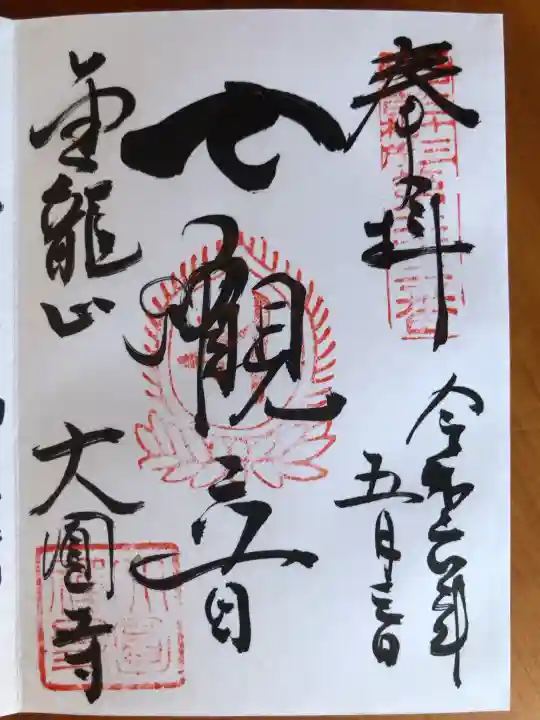 奉拝
令和六年
五月三日
七観音
金龍山
大圓寺